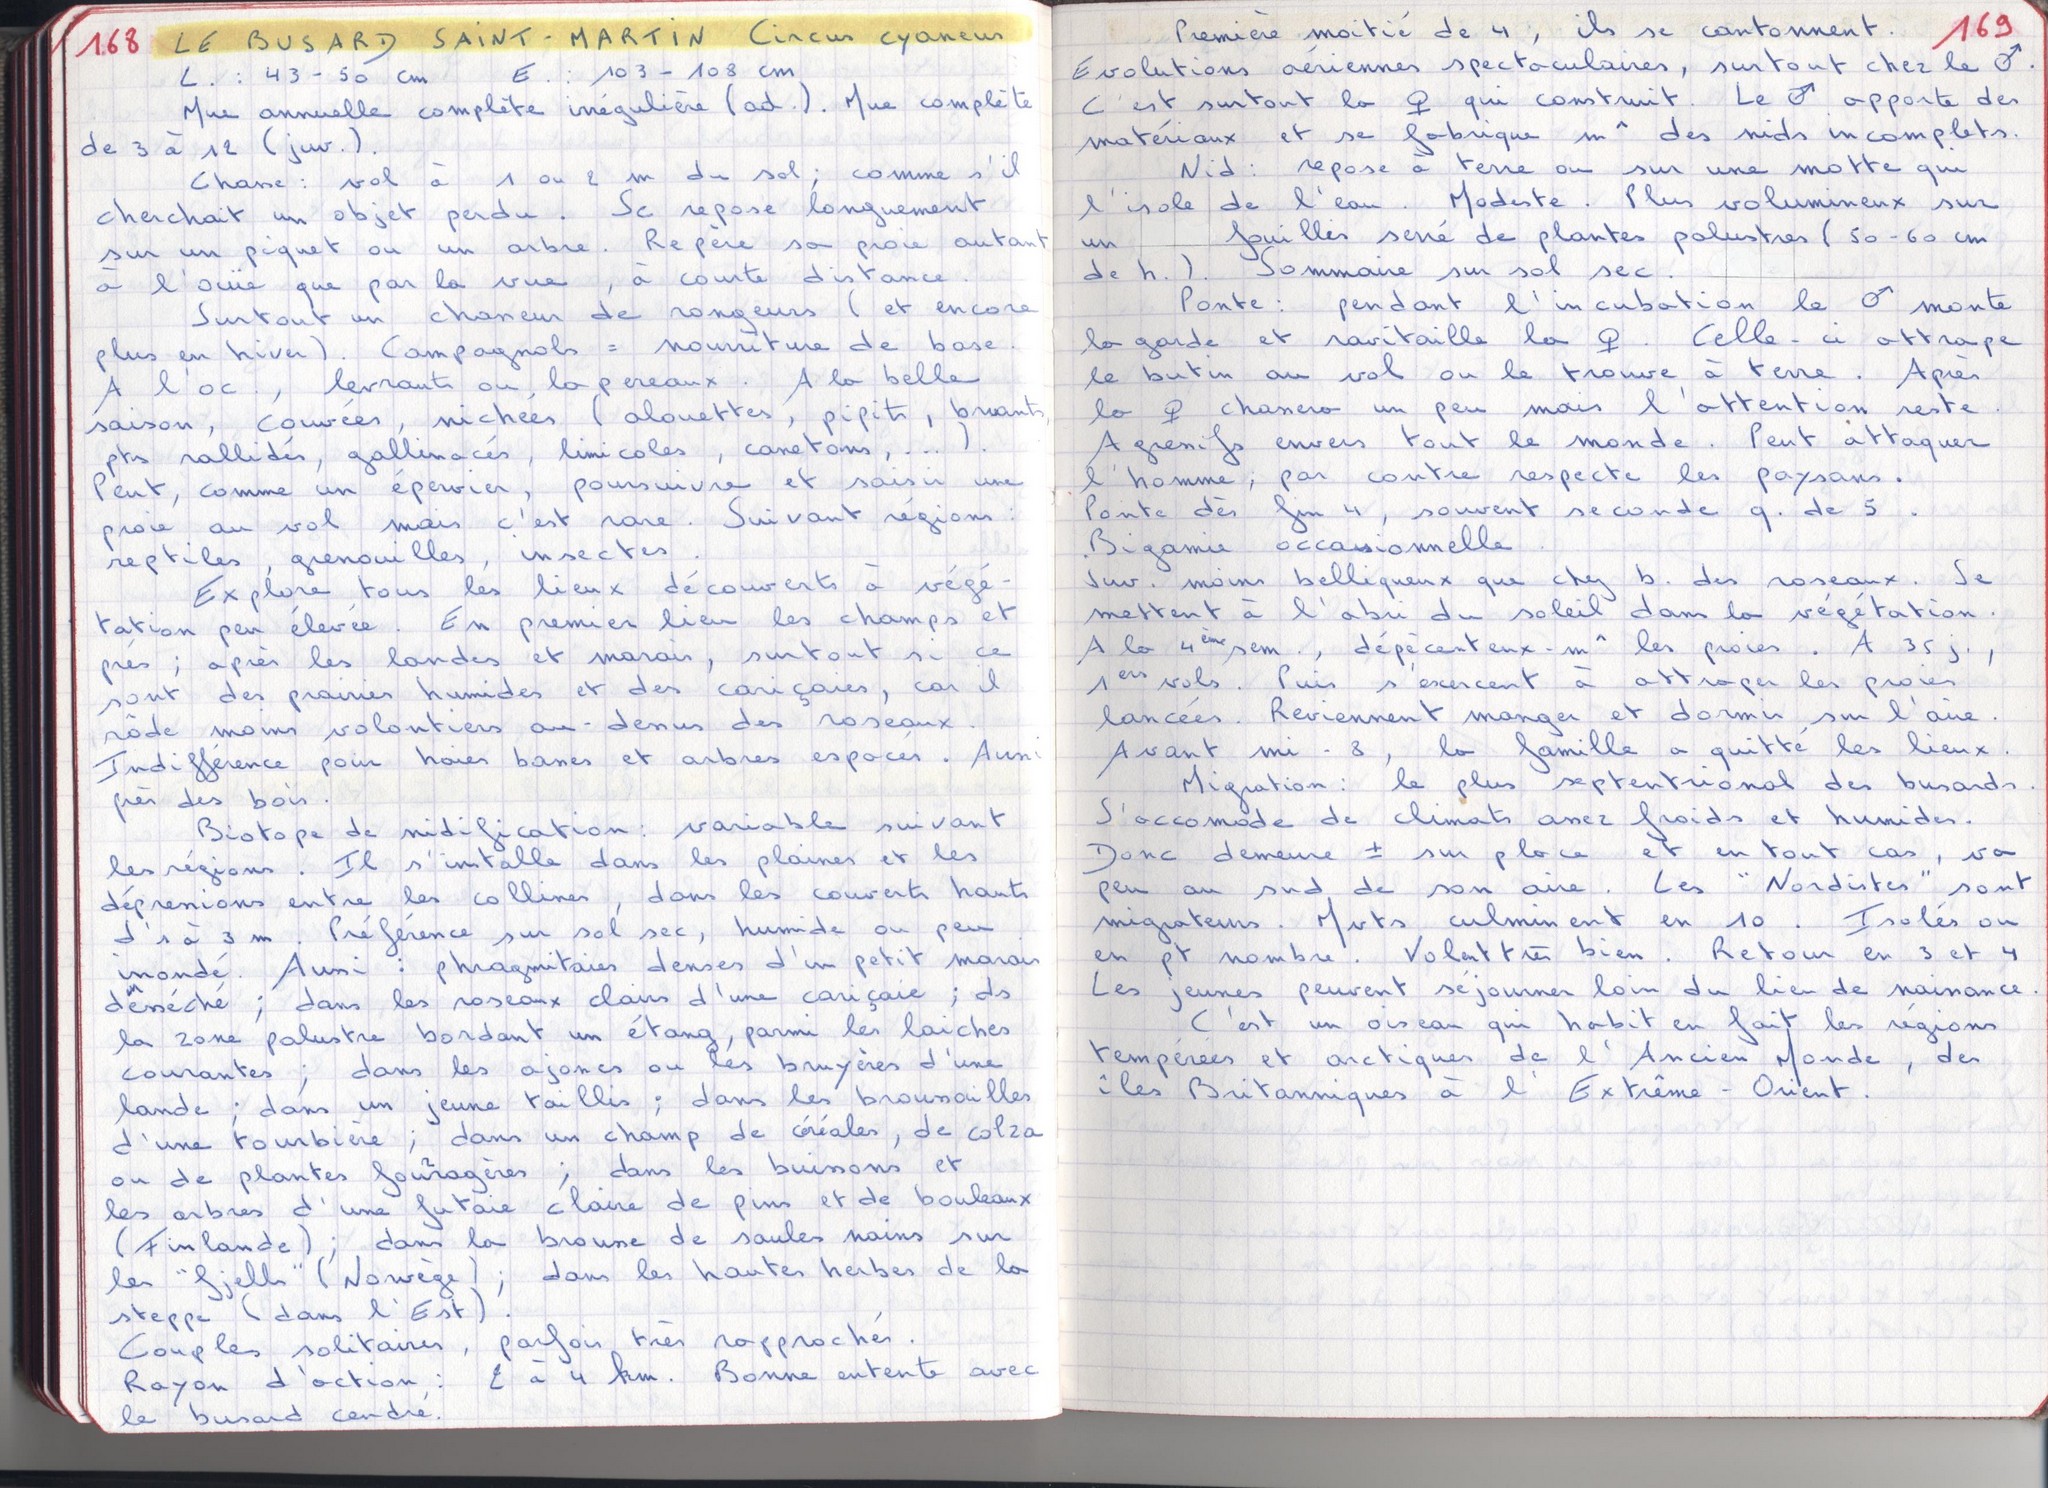 168 LE BUSARD SAINT-MARTIN Circus cyaneus
L. : 43-50 cm E. : 103-108 cm
Mue annuelle complète irrégulière (ad.). Mue complète
de 3 à 12 (juv.).
Chasse : vol à 1 ou 2 m du sol ; comme s'il
cherchait un objet perdu. Se repose longuement
sur un piquet ou un arbre. Repère sa proie autant
à l'ouïe que par la vue, à courte distance.
Surtout un chasseur de rongeurs (et encore
plus en hiver). Campagnols = nourriture de base.
A l'oc., levrauts ou lapereaux. A la belle
saison, couvées, nichées (alouettes, pipits, bruants,
pts rallidés, gallinacés, limicoles, canetons, ...).
Peut, comme un épervier, poursuivre et saisir une
proie au vol mais c'est rare. Suivant régions :
reptiles, grenouilles, insectes.
Explore tous les lieux découverts à végé-
tation peu élevée. En premier lieu les champs et
prés ; après les landes et marais, surtout si ce
sont des prairies humides et des cariçaies, car il
rôde moins volontiers au-dessus des roseaux.
Indifférence pour haies basses et arbres espacés. Aussi
près des bois.
Biotope de nidification : variable suivant
les régions. Il s'installe dans les plaines et les
dépressions entre les collines, dans les couverts hauts
d'1 à 3 m. Préférence sur sol sec, humide ou peu
inondé. Aussi : phragmitaies denses d'un petit marais
desséché ; dans les roseaux clairs d'une cariçaie ; ds
la zone palustre bordant un étang, parmi les laiches
courantes ; dans les ajoncs ou les bruyères d'une
lande ; dans un jeune taillis ; dans les broussailles
d'une tourbière ; dans un champ de céréales, de colza
ou de plantes fourragères ; dans les buissons et
les arbres d'une futaie claire de pins et de bouleaux
(Finlande) ; dans la brousse de saules nains sur
les "fjells" (Norwège) ; dans les hautes herbes de la
steppe (dans l'Est).
Couples solitaires, parfois très rapprochés.
Rayon d'action : 2 à 4 km. Bonne entente avec
le busard cendré.
169
Première moitié de 4, ils se cantonnent.
Evolutions aériennes spectaculaires, surtout chez le ♂.
C'est surtout la ♀ qui construit. Le ♂ apporte des
matériaux et se fabrique m^ des nids incomplets.
Nid : repose à terre ou sur une motte qui
l'isole de l'eau. Modeste. Plus volumineux sur
un fouillis serré de plantes palustres (50-60 cm
de h.). Sommaire sur sol sec.
Ponte : pendant l'incubation le ♂ monte
la garde et ravitaille la ♀. Celle-ci attrape
le butin au vol ou le trouve à terre. Après
la ♀ chassera un peu mais l'attention reste.
Agressifs envers tout le monde. Peut attaquer
l'homme ; par contre respecte les paysans.
Ponte dès fin 4, souvent seconde q. de 5.
Bigamie occasionnelle.
Juv. moins belliqueux que chez b. des roseaux. Se
mettent à l'abri du soleil dans la végétation.
A la 4ème sem., dépècent eux-m^ les proies. A 35 j.,
1ers vols. Puis s'exercent à attraper les proies
lancées. Reviennent manger et dormir sur l'aire.
Avant mi-8, la famille a quitté les lieux.
Migration : le plus septentrional des busards.
S'accomode de climats assez froids et humides.
Donc demeure ± sur place et en tout cas, va
peu au sud de son aire. Les "Nordistes" sont
migrateurs. Mvts culminent en 10. Isolés ou
en pt nombre. Volent très bien. Retour en 3 et 4
Les jeunes peuvent séjourner loin du lieu de naissance.
C'est un oiseau qui habit en fait les régions
tempérées et arctiques de l'Ancien Monde, des
îles Britanniques à l'Extrême-Orient.